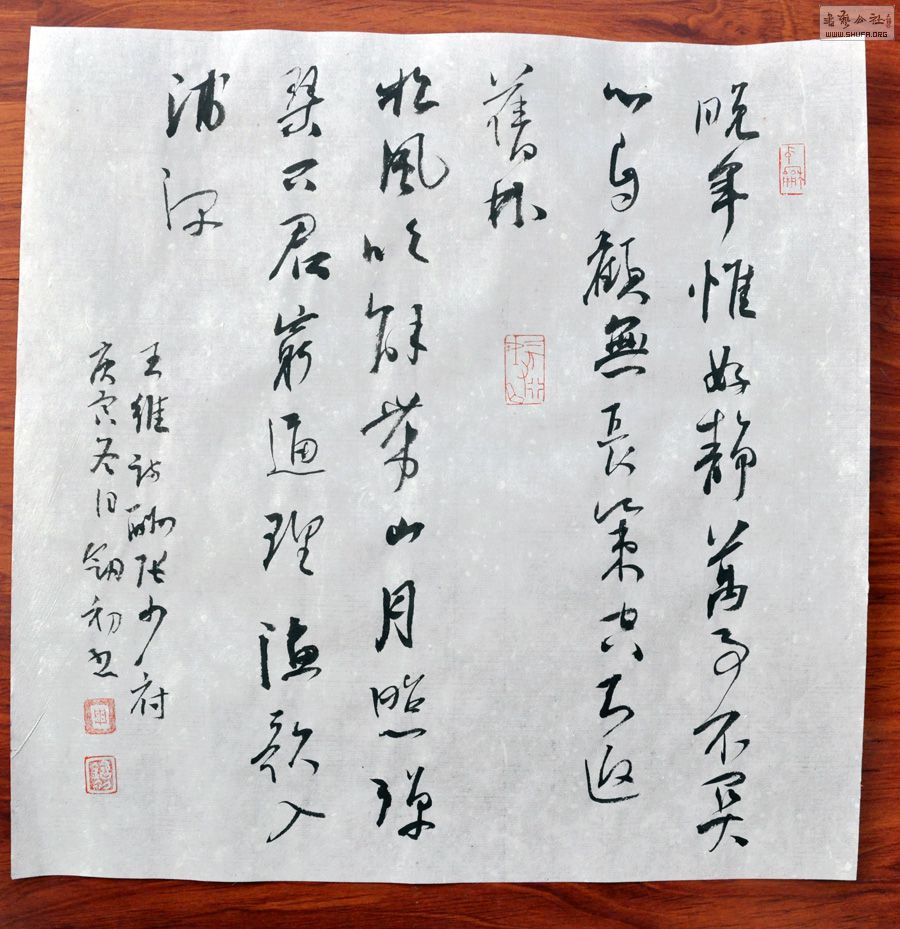 書藝公社
WWW.SHUFA.ORG
晚年惟好靜萬事不關
心自顧無長策空知返
舊林
松風吹解帶山月照彈
琴問君窮通理漁歌入
浦深
王維詩酬張少府
庚寅冬日初書